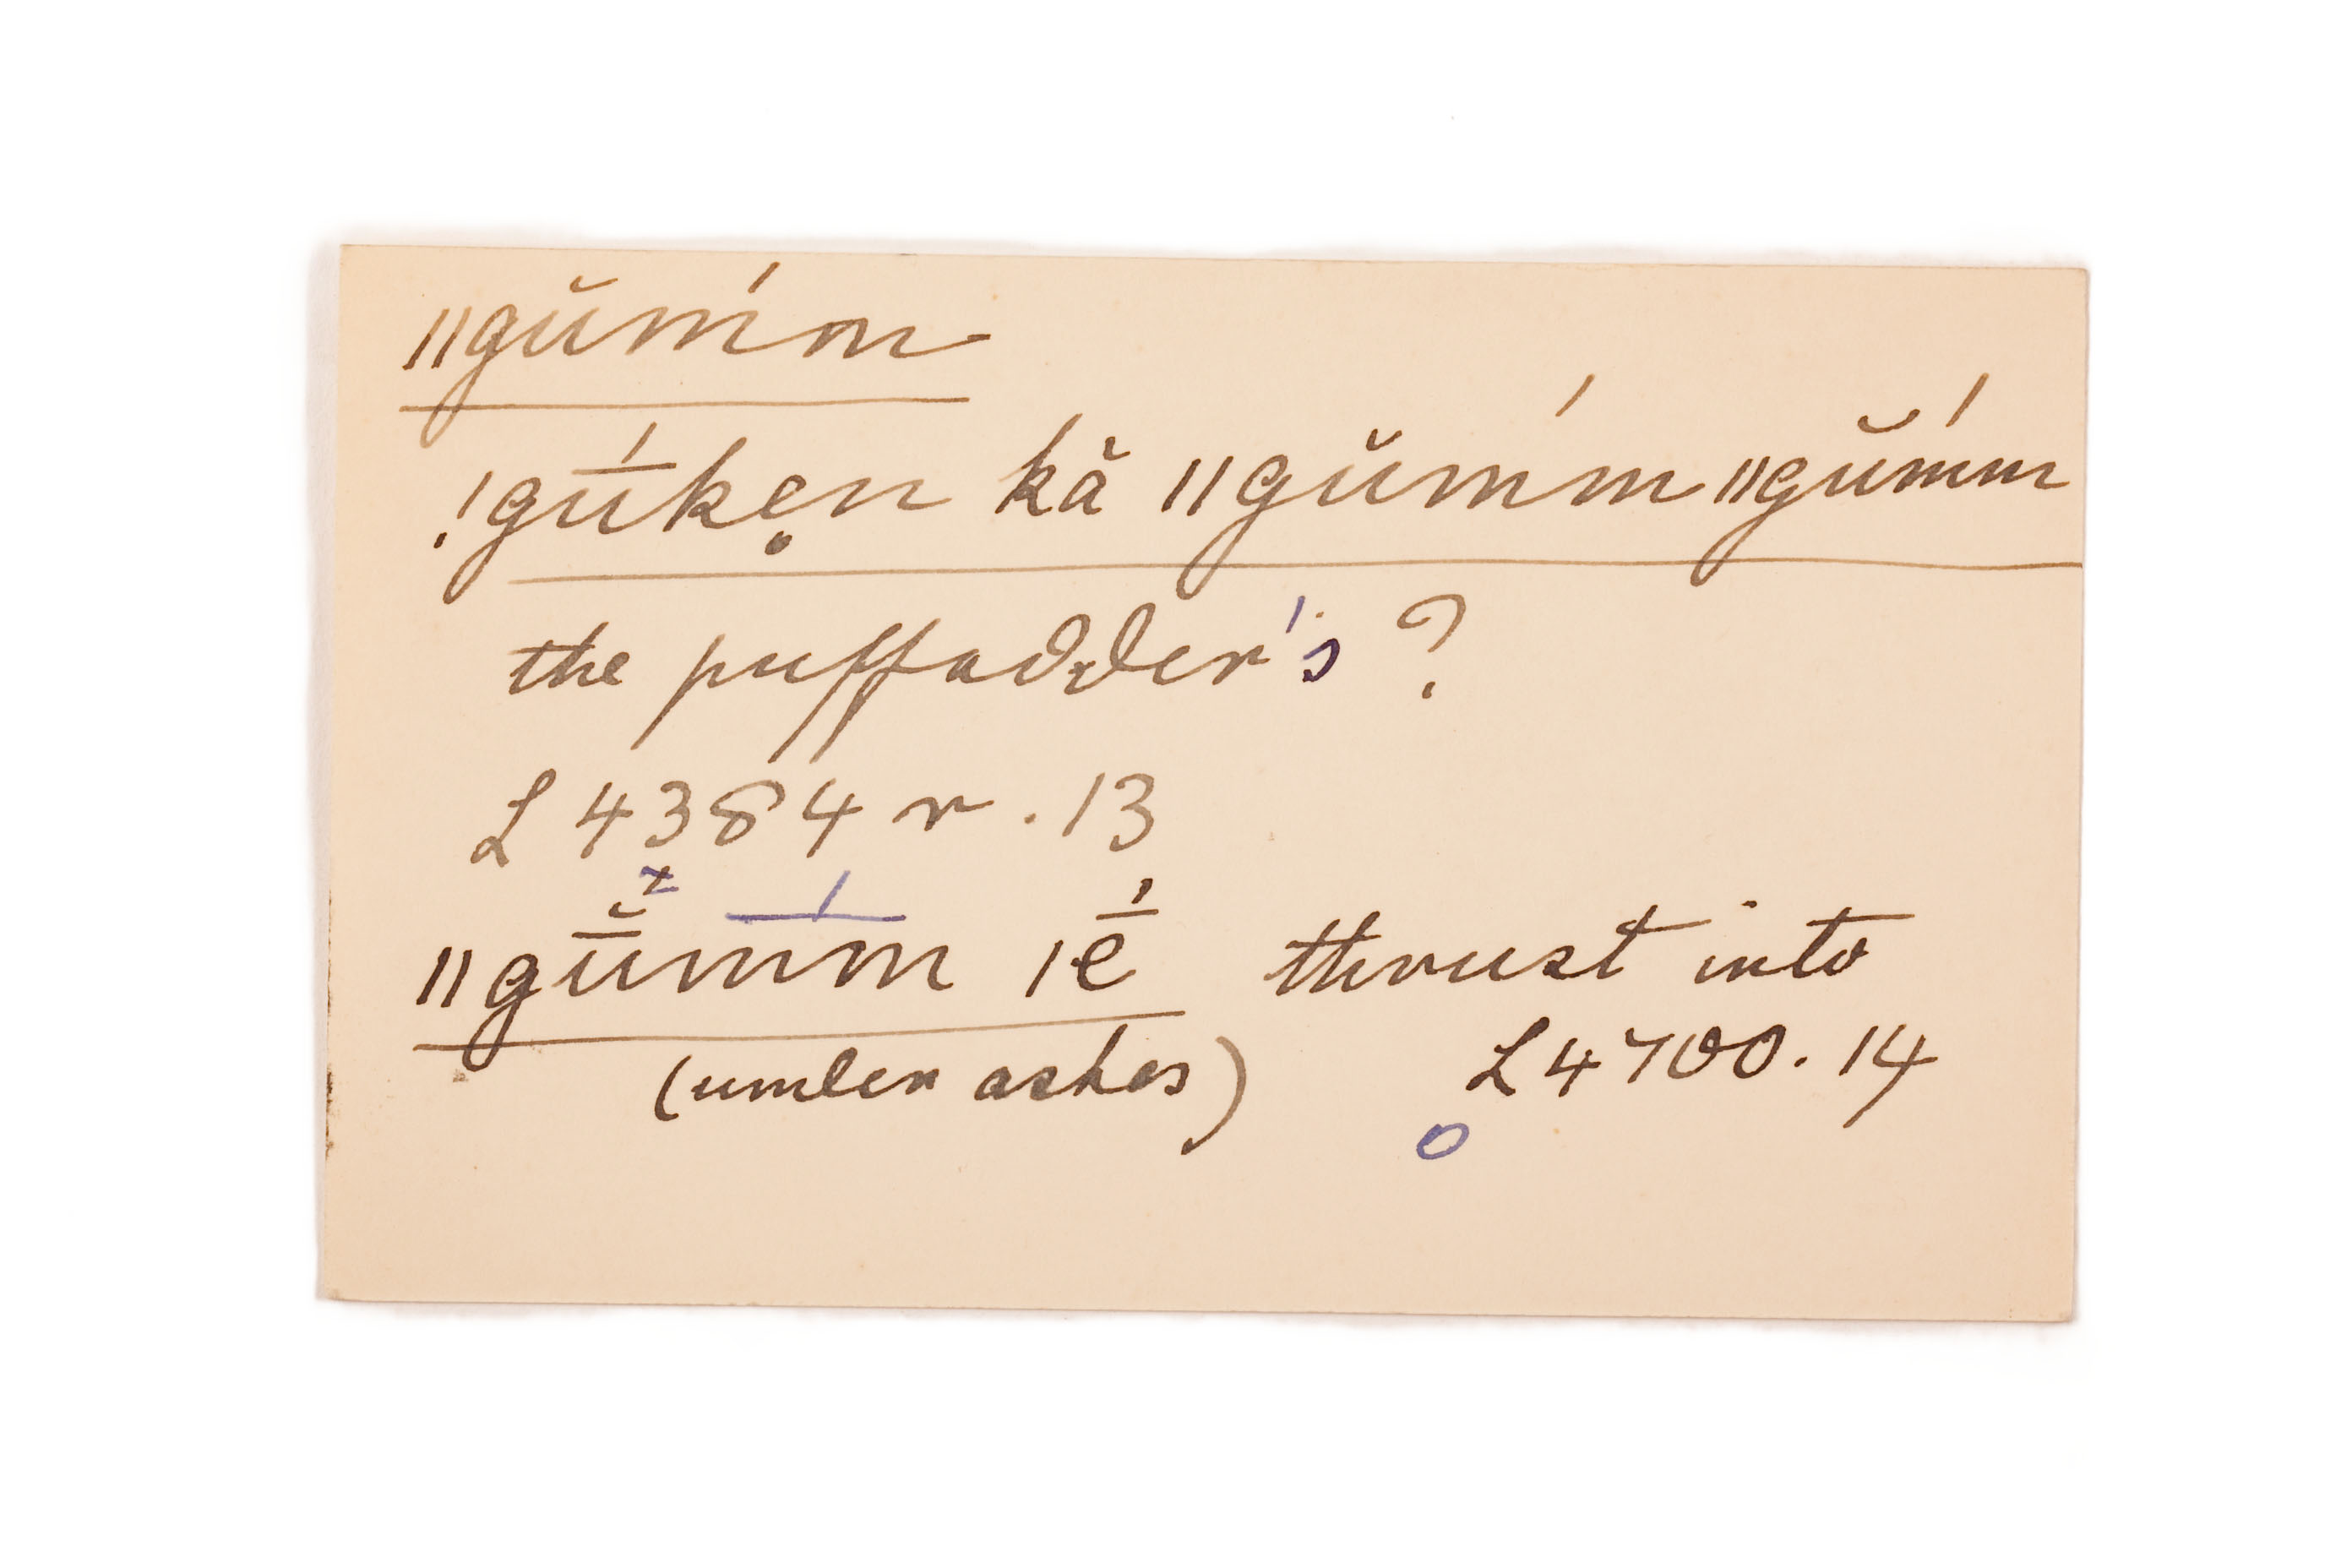 ǁgŭḿm
ǃgū́kẹn kă ǁgŭḿm ǁgŭḿm
the puffadder's ?
L 4384 r . 13
ǁgŭ̄m̄́m ǀḗ thrust into
(under ashes) L 4700. 14